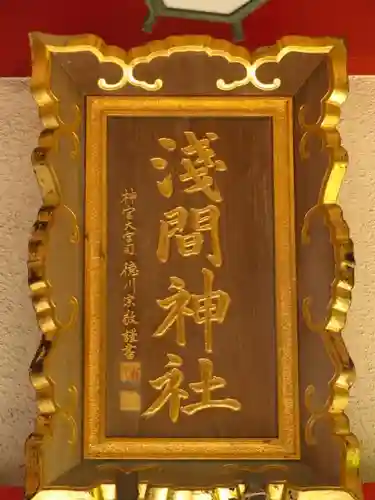 淺間神社
神宮大宮司 德川宗敬謹書